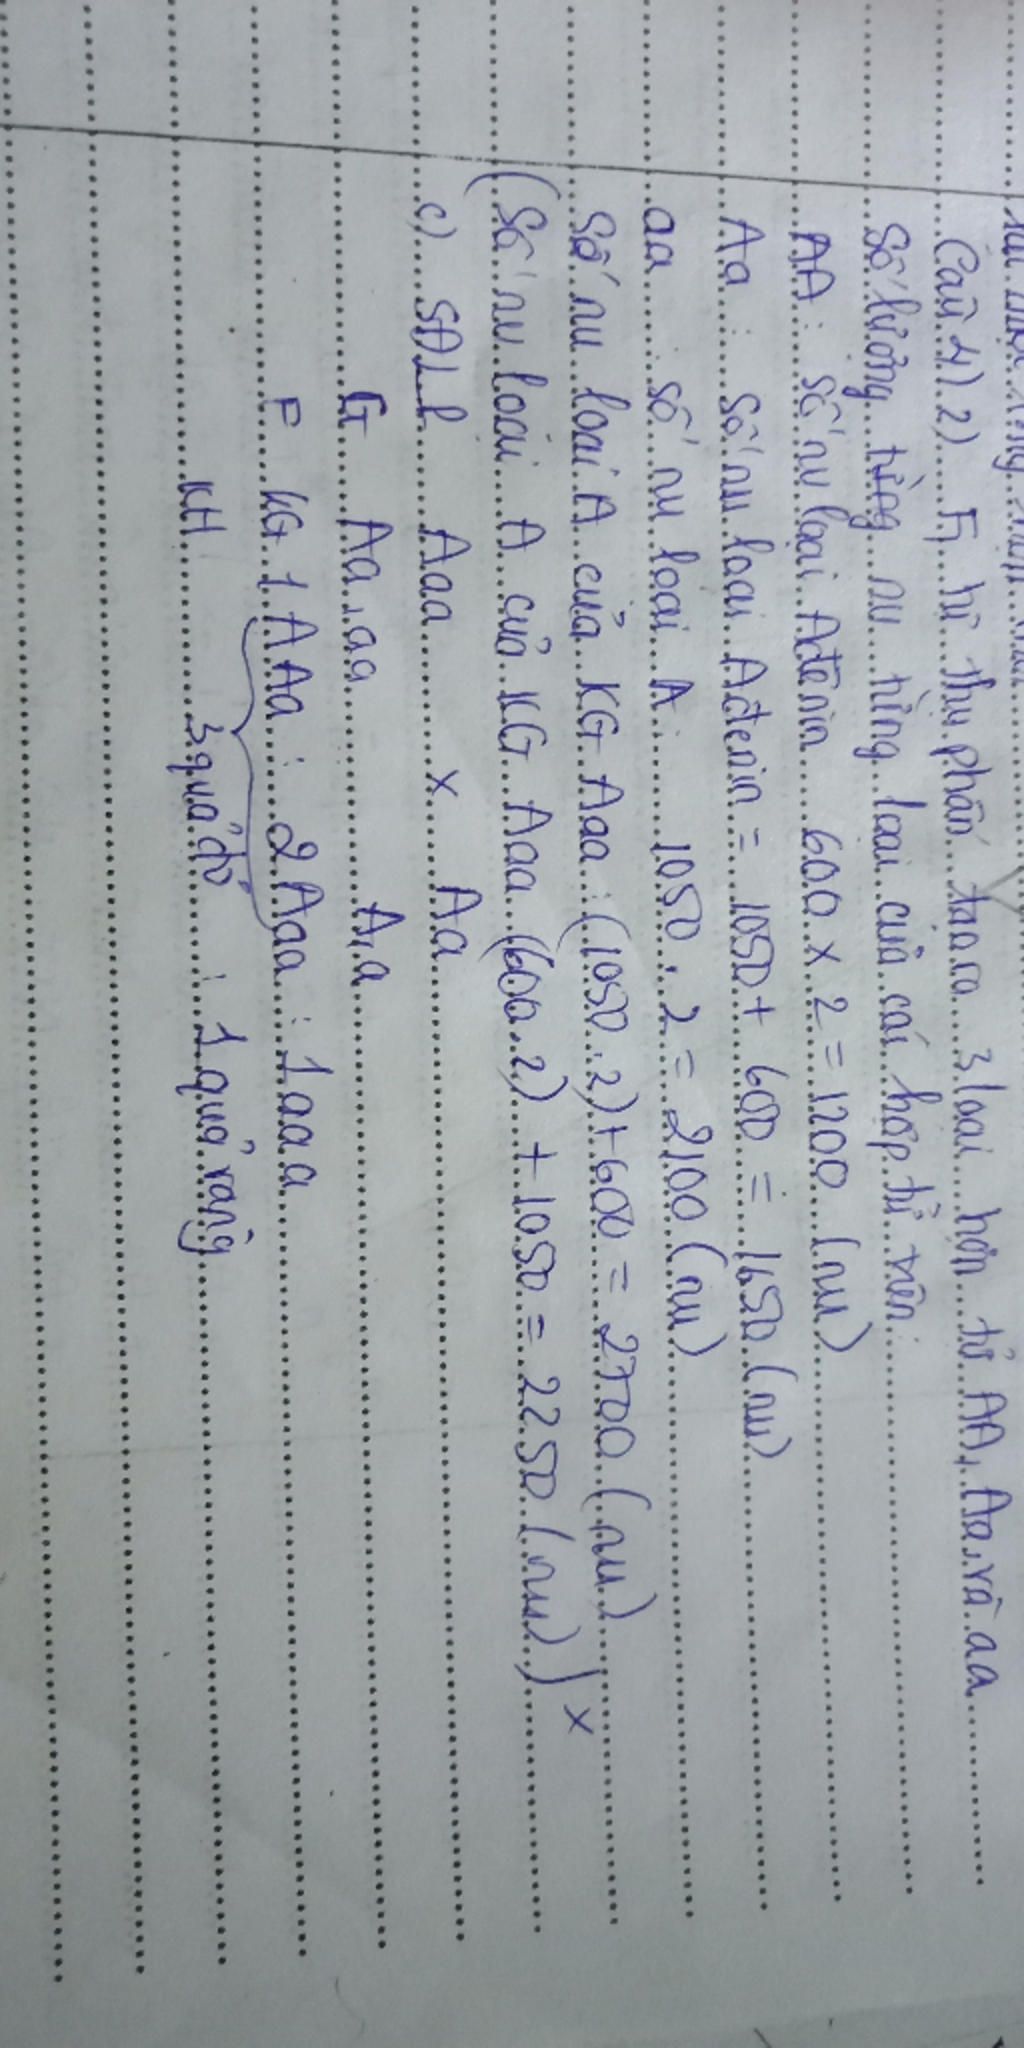 Câu 4) 2) F1 tự thụ phấn tạo ra 3 loại hợp tử AA, Aa và aa
Số lượng từng nu từng loại của các hợp tử trên:
AA: số nu loại Ađênin 600 x 2 = 1200 (nu)
Aa: số nu loại Ađenin = 1050 + 600 = 1650 (nu)
aa số nu loại A 1050.2 = 2100 (nu)
Số nu loại A của KG Aaa: (1050.2)+600 = 2700 (nu)
(Số nu loại A của KG Aaa (600.2) + 1050 = 2250 (nu)) x
c) SĐL P Aaa x Aa
G Aa, aa A, a
F KG 1 AAa : 2 Aaa : 1 aaa
KH 3 quả đỏ : 1 quả vàng